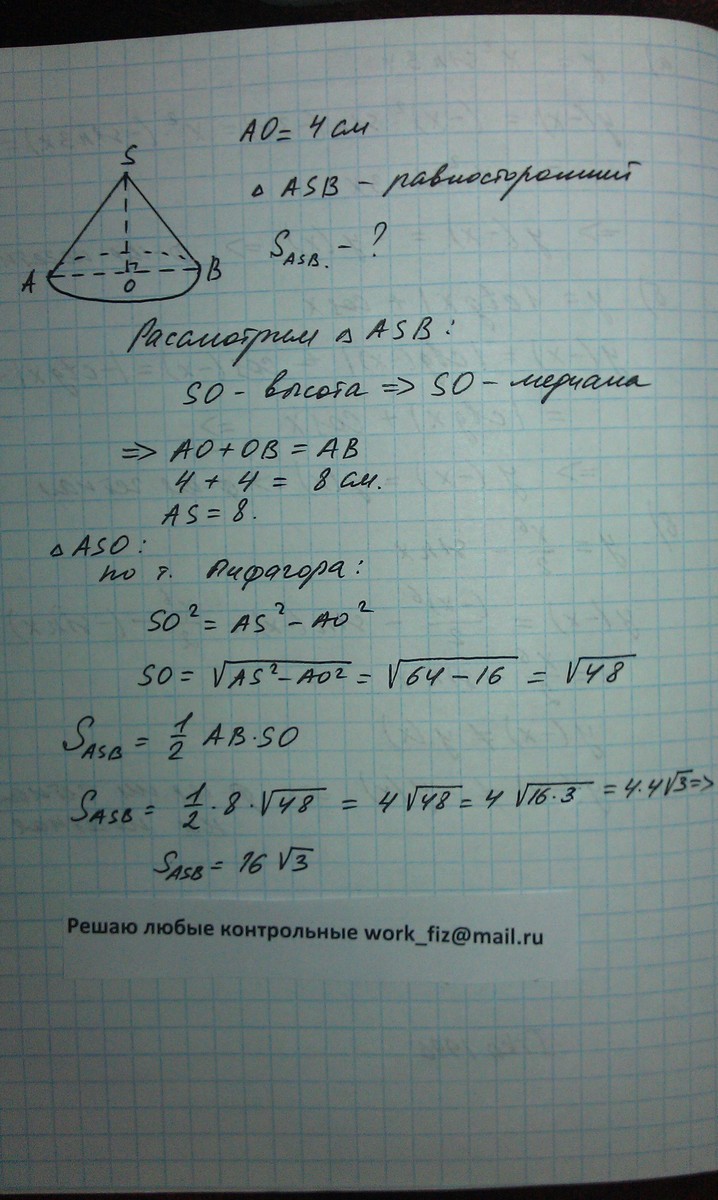 AO = 4 см
△ ASB – равносторонний
S_ASB. – ?
S
A
B
O
Рассмотрим △ ASB:
SO – высота => SO – медиана
=> AO + OB = AB
4 + 4 = 8 см.
AS = 8.
△ ASO:
по т. Пифагора:
SO² = AS² – AO²
SO = √(AS² – AO²) = √(64 – 16) = √48
S_ASB = 1/2 AB · SO
S_ASB = 1/2 · 8 · √48 = 4 √48 = 4 √(16 · 3) = 4 · 4 √3 =>
S_ASB = 16 √3
Решаю любые контрольные work_fiz@mail.ru